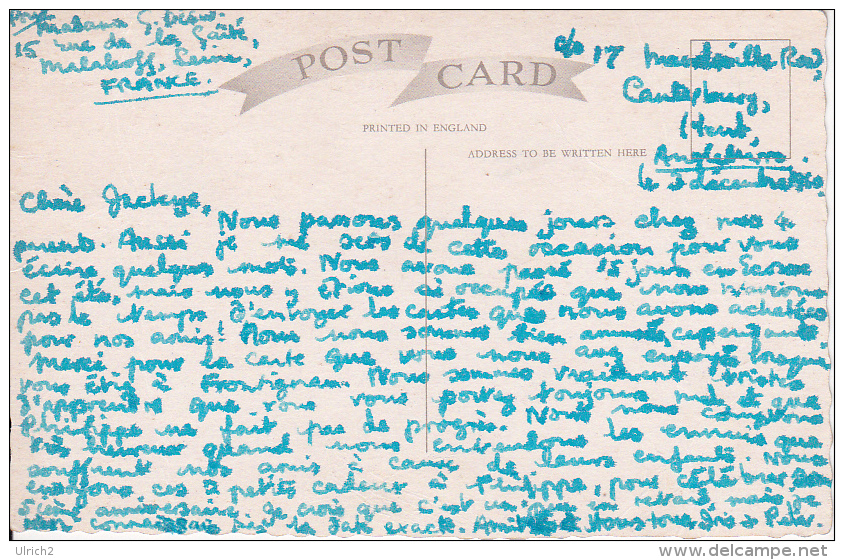 Madame G.
15 rue de la Gaîté,
Malakoff, Seine,
FRANCE.
POST CARD
PRINTED IN ENGLAND
ADDRESS TO BE WRITTEN HERE
c/o 17 Road,
Canterbury,
Kent
Angleterre.
le 3 décembre
Chère
Nous passons quelques jours chez mes
parents. Aussi je me sers de cette occasion pour vous
écrire quelques mots. Nous avons passé 15 jours en Ecosse
cet été, mais nous y étions si occupés que nous n'avions
pas le temps d'envoyer les cartes que nous avons achetées
pour nos amis! Nous nous sommes bien amusés, cependant.
Merci pour la carte que vous nous avez envoyé lorsque
vous étiez à Frontignan. Nous sommes vraiment tristes
d'apprendre que vous vous portez toujours mal et que
Philippe ne fait pas de progrès. Nous nous
très heureux quand nous entendons les ennuis que
souffrent nos amis à cause de leurs enfants. Nous
envoyons ces petits cadeaux à Philippe, pour célébrer son
5ème anniversaire. Je crois que c'est un peu en retard mais je
connaissais pas la date exacte. Amitiés à vous tous
Ulrich2
www.delcampe.net